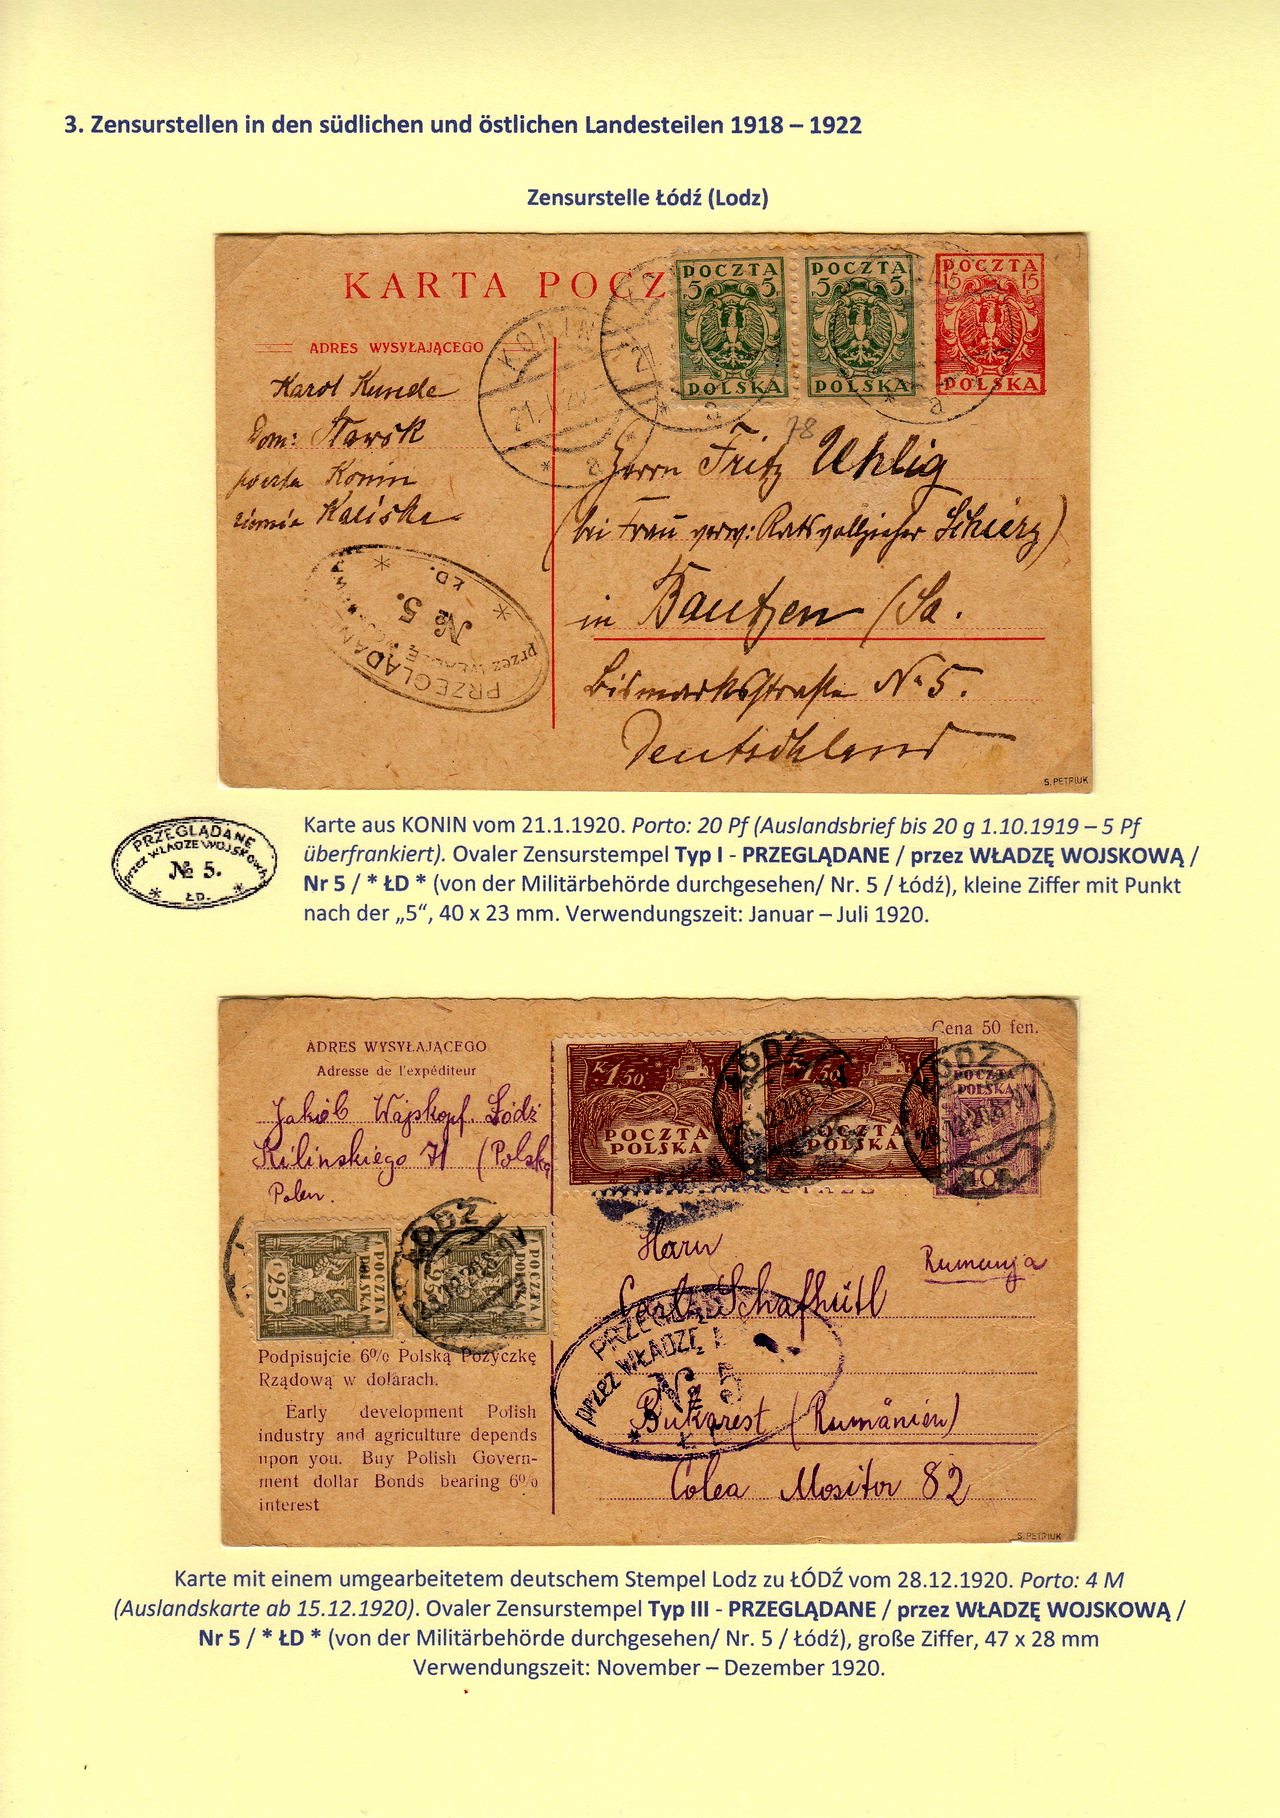 3. Zensurstellen in den südlichen und östlichen Landesteilen 1918 – 1922
Zensurstelle Łódź (Lodz)
KARTA POCZ
POCZTA
5 5
POLSKA
POCZTA
5 5
POLSKA
POCZTA
15 15
POLSKA
ADRES WYSYŁAJĄCEGO
KONIN
21.1.20
a
a
a
78
Karol Kunde
Dom: Stawsk
poczta Konin
ziemia Kaliska
Herrn Fritz Uhlig
(bei Frau verw: Ratsvollzieher Schierz)
in Bautzen /Sa.
Bismarkstraße No 5.
Deutschland
PRZEGLĄDAN
przez WŁADZĘ WOJSKOWĄ
№ 5.
* ŁD. *
S. PETRIUK
PRZEGLĄDANE
przez WŁADZE WOJSKOWĄ
№ 5.
* ŁD. *
Karte aus KONIN vom 21.1.1920. Porto: 20 Pf (Auslandsbrief bis 20 g 1.10.1919 – 5 Pf
überfrankiert). Ovaler Zensurstempel Typ I - PRZEGLĄDANE / przez WŁADZĘ WOJSKOWĄ /
Nr 5 / * ŁD * (von der Militärbehörde durchgesehen/ Nr. 5 / Łódź), kleine Ziffer mit Punkt
nach der „5“, 40 x 23 mm. Verwendungszeit: Januar – Juli 1920.
Cena 50 fen.
ADRES WYSYŁAJĄCEGO
Adresse de l'expéditeur
Jakób Wajskopf. Łódź
Kilinskiego 71 (Polska
Polen.
K 1.50
POCZTA
POLSKA
K 1.50
POCZTA
POLSKA
POCZTA
POLSKA
ŁÓDŹ
28.12.20.8-9V
ŁÓDŹ
28.12.20.8-9V
25
POCZTA
POLSKA
25
POCZTA
POLSKA
ŁÓDŹ
28.12.20.8-9V
Herrn
Carl Schafhütl
Rumunja
Bukarest (Rumänien)
Colea Mositor 82
PRZEGLĄD
przez WŁADZĘ
№ 5
* Ł
Podpisujcie 6% Polską Pożyczkę
Rządową w dolarach.
Early development Polish
industry and agriculture depends
upon you. Buy Polish Govern-
ment dollar Bonds bearing 6%
interest
S. PETRIUK
Karte mit einem umgearbeitetem deutschem Stempel Lodz zu ŁÓDŹ vom 28.12.1920. Porto: 4 M
(Auslandskarte ab 15.12.1920). Ovaler Zensurstempel Typ III - PRZEGLĄDANE / przez WŁADZĘ WOJSKOWĄ /
Nr 5 / * ŁD * (von der Militärbehörde durchgesehen/ Nr. 5 / Łódź), große Ziffer, 47 x 28 mm
Verwendungszeit: November – Dezember 1920.